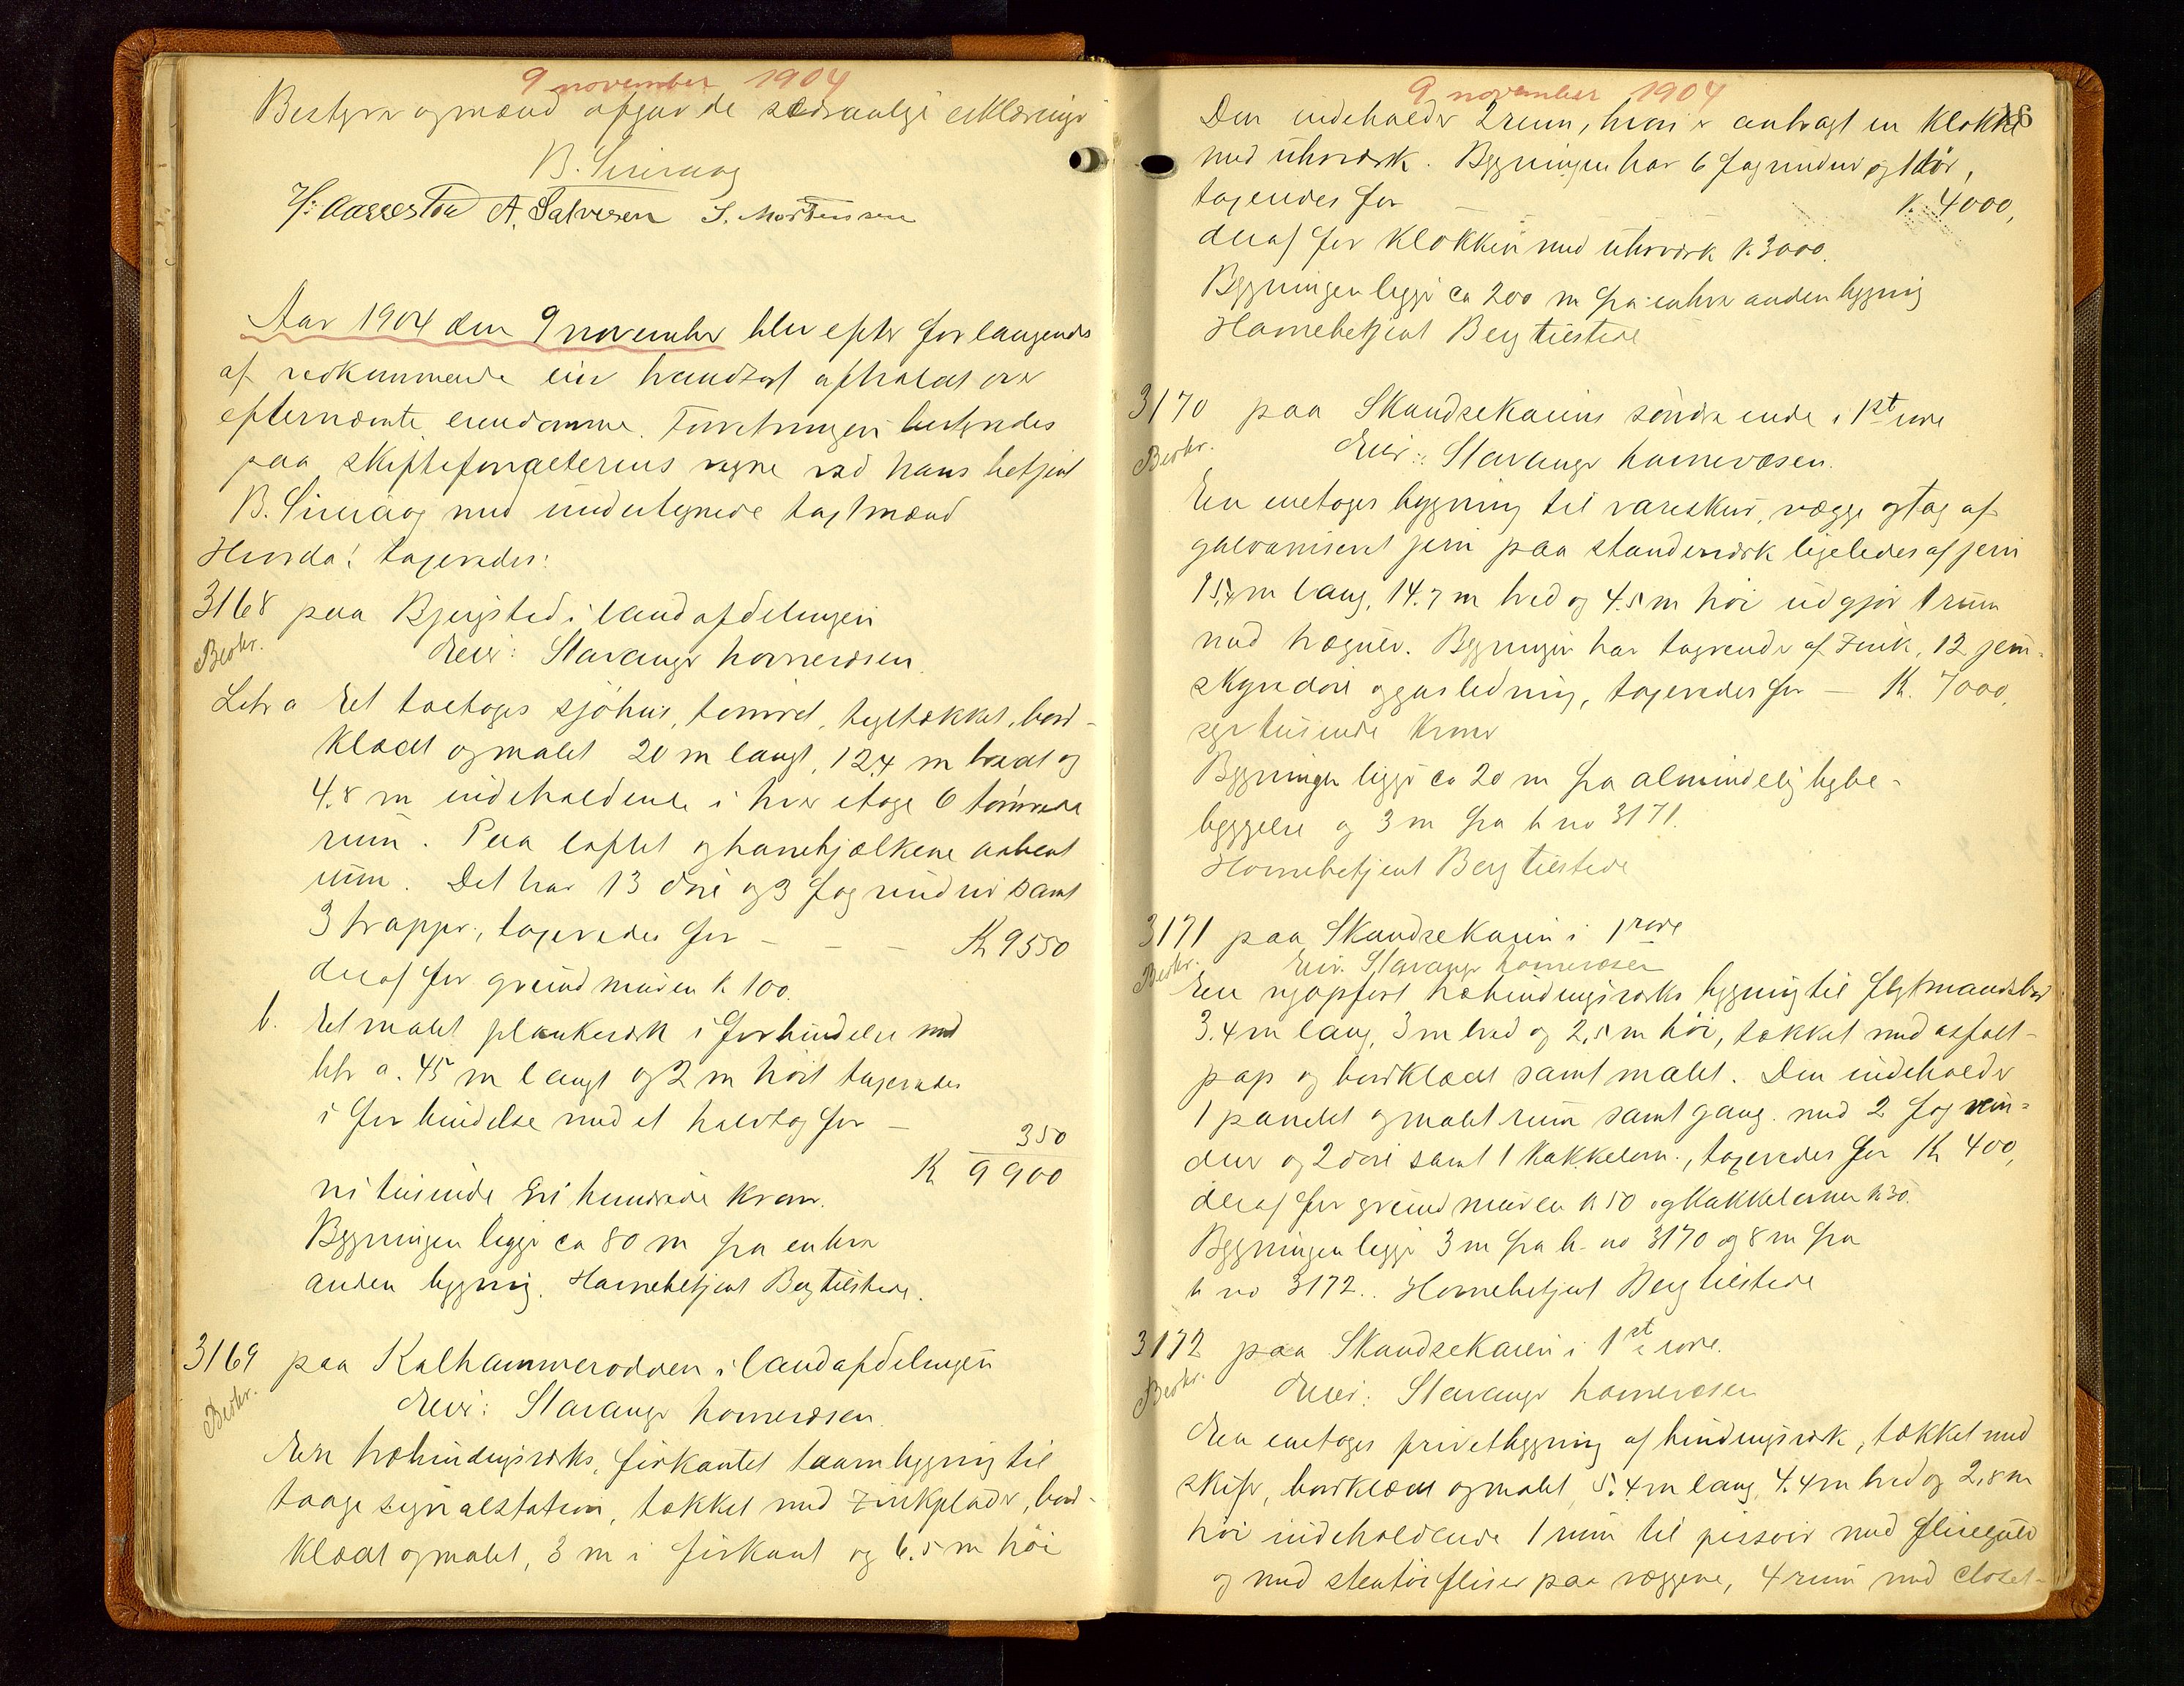 9 november 1904
Bestyrer og mænd afgav de sedvanlige erklæringer
B. Sirevaag
H. Aarrestad A. Salvesen S. Mortensen
Aar 1904 den 9 november blev efter forlangende
af vedkommende eier brandtaxt afholdt over
efternævnte eiendomme. Forretningen bestyredes
paa skiftefoged vegne ved hans betjent
B. Sirevaag med undertegnede taxtmænd
Hvorda! taxeredes:
3168 paa Bjergsted i landafdelingen
Beskr.
Eier: Stavanger havnevæsen
Litr a Et toetages sjöhus, tömret, tegltækket, bord-
klædt og malet 20 m langt, 12.4 m bredt og
4.8 m indeholdende i hver etage 6 tömrede
rum. Paa loftet og hanebjælkene aabent
rum. Det har 13 döre og 3 fag vinduer samt
3 trapper, taxeredes for - - - Kr 9550
deraf for grundmuren k 100.
b. Et malet plankeværk i forbindelse med
litr a. 45 m langt og 2 m höit taxeredes
i forbindelse med et halvtag for - 350
K 9900
ni tusinde ni hundrede kroner.
Bygningen ligger ca 80 m fra enhver
anden bygning. Havnebetjent Berg tilstede.
3169 paa Kalhammerodden i landafdelingen
Beskr.
Eier: Stavanger havnevæsen
En træbindingsværks, firkantet taarnbygning til
taage signalstation, tækket med zinkplader, bord-
klædt og malet, 3 m i firkant og 6.5 m höi
9 november 1904
Den indeholder 2 rum, hvori er anbragt en klokke
med uhrværk. Bygningen har 6 fag vinduer og 1 dör,
taxeredes for - - K. 4000,
deraf for klokken med uhrværk k. 3000.
Bygningen ligger ca 200 m fra enhver anden bygning
Havnebetjent Berg tilstede
3170 paa Skandsekaiens söndre ende i 1st rode
Beskr.
Eier: Stavanger havnevæsen.
En enetages bygning til vareskur, vægge og tag af
galvaniseret jern paa stenderværk ligeledes af jern
15.4 m lang, 14.7 m bred og 4.5 m höi udgjör 1 rum
med bægner. Bygningen har tagrender af zink, 12 jern-
skyvedöre og gasledning, taxeredes for - K. 7000,
syv tusinde kroner
Bygningen ligger ca 20 m fra almindelig bybe-
byggelse og 3 m fra h no 3171.
Havnebetjent Berg tilstede
3171 paa Skandsekaien i 1 rode
Beskr.
Eier. Stavanger havnevæsen
En nyopfört træbindingsværks bygning til flytmandsbod
3.4 m lang, 3 m bred og 2,5 m höi, tækket med asfalt-
pap og bordklædt samt malet. Den indeholder
1 panelet og malet rum samt gang med 2 fag vin-
duer og 2 döre samt 1 kakkelovn, taxeredes for Kr 400,
deraf for grundmuren k. 50 og kakkelovnen k 30.
Bygningen ligger 3 m fra h. no 3170 og 8 m fra
h no 3172. Havnebetjent Berg tilstede
3172 paa Skandsekaien i 1st rode.
Beskr.
Eier: Stavanger havnevæsen
En enetages privetbygning af bindingsværk, tækket med
skifer, bordklædt og malet 5.4 m lang, 4.4 m bred og 2,8 m
höi indeholdende 1 rum til pissoir med flisegulv
og med stentöifliser paa væggene, 4 rum med closet-